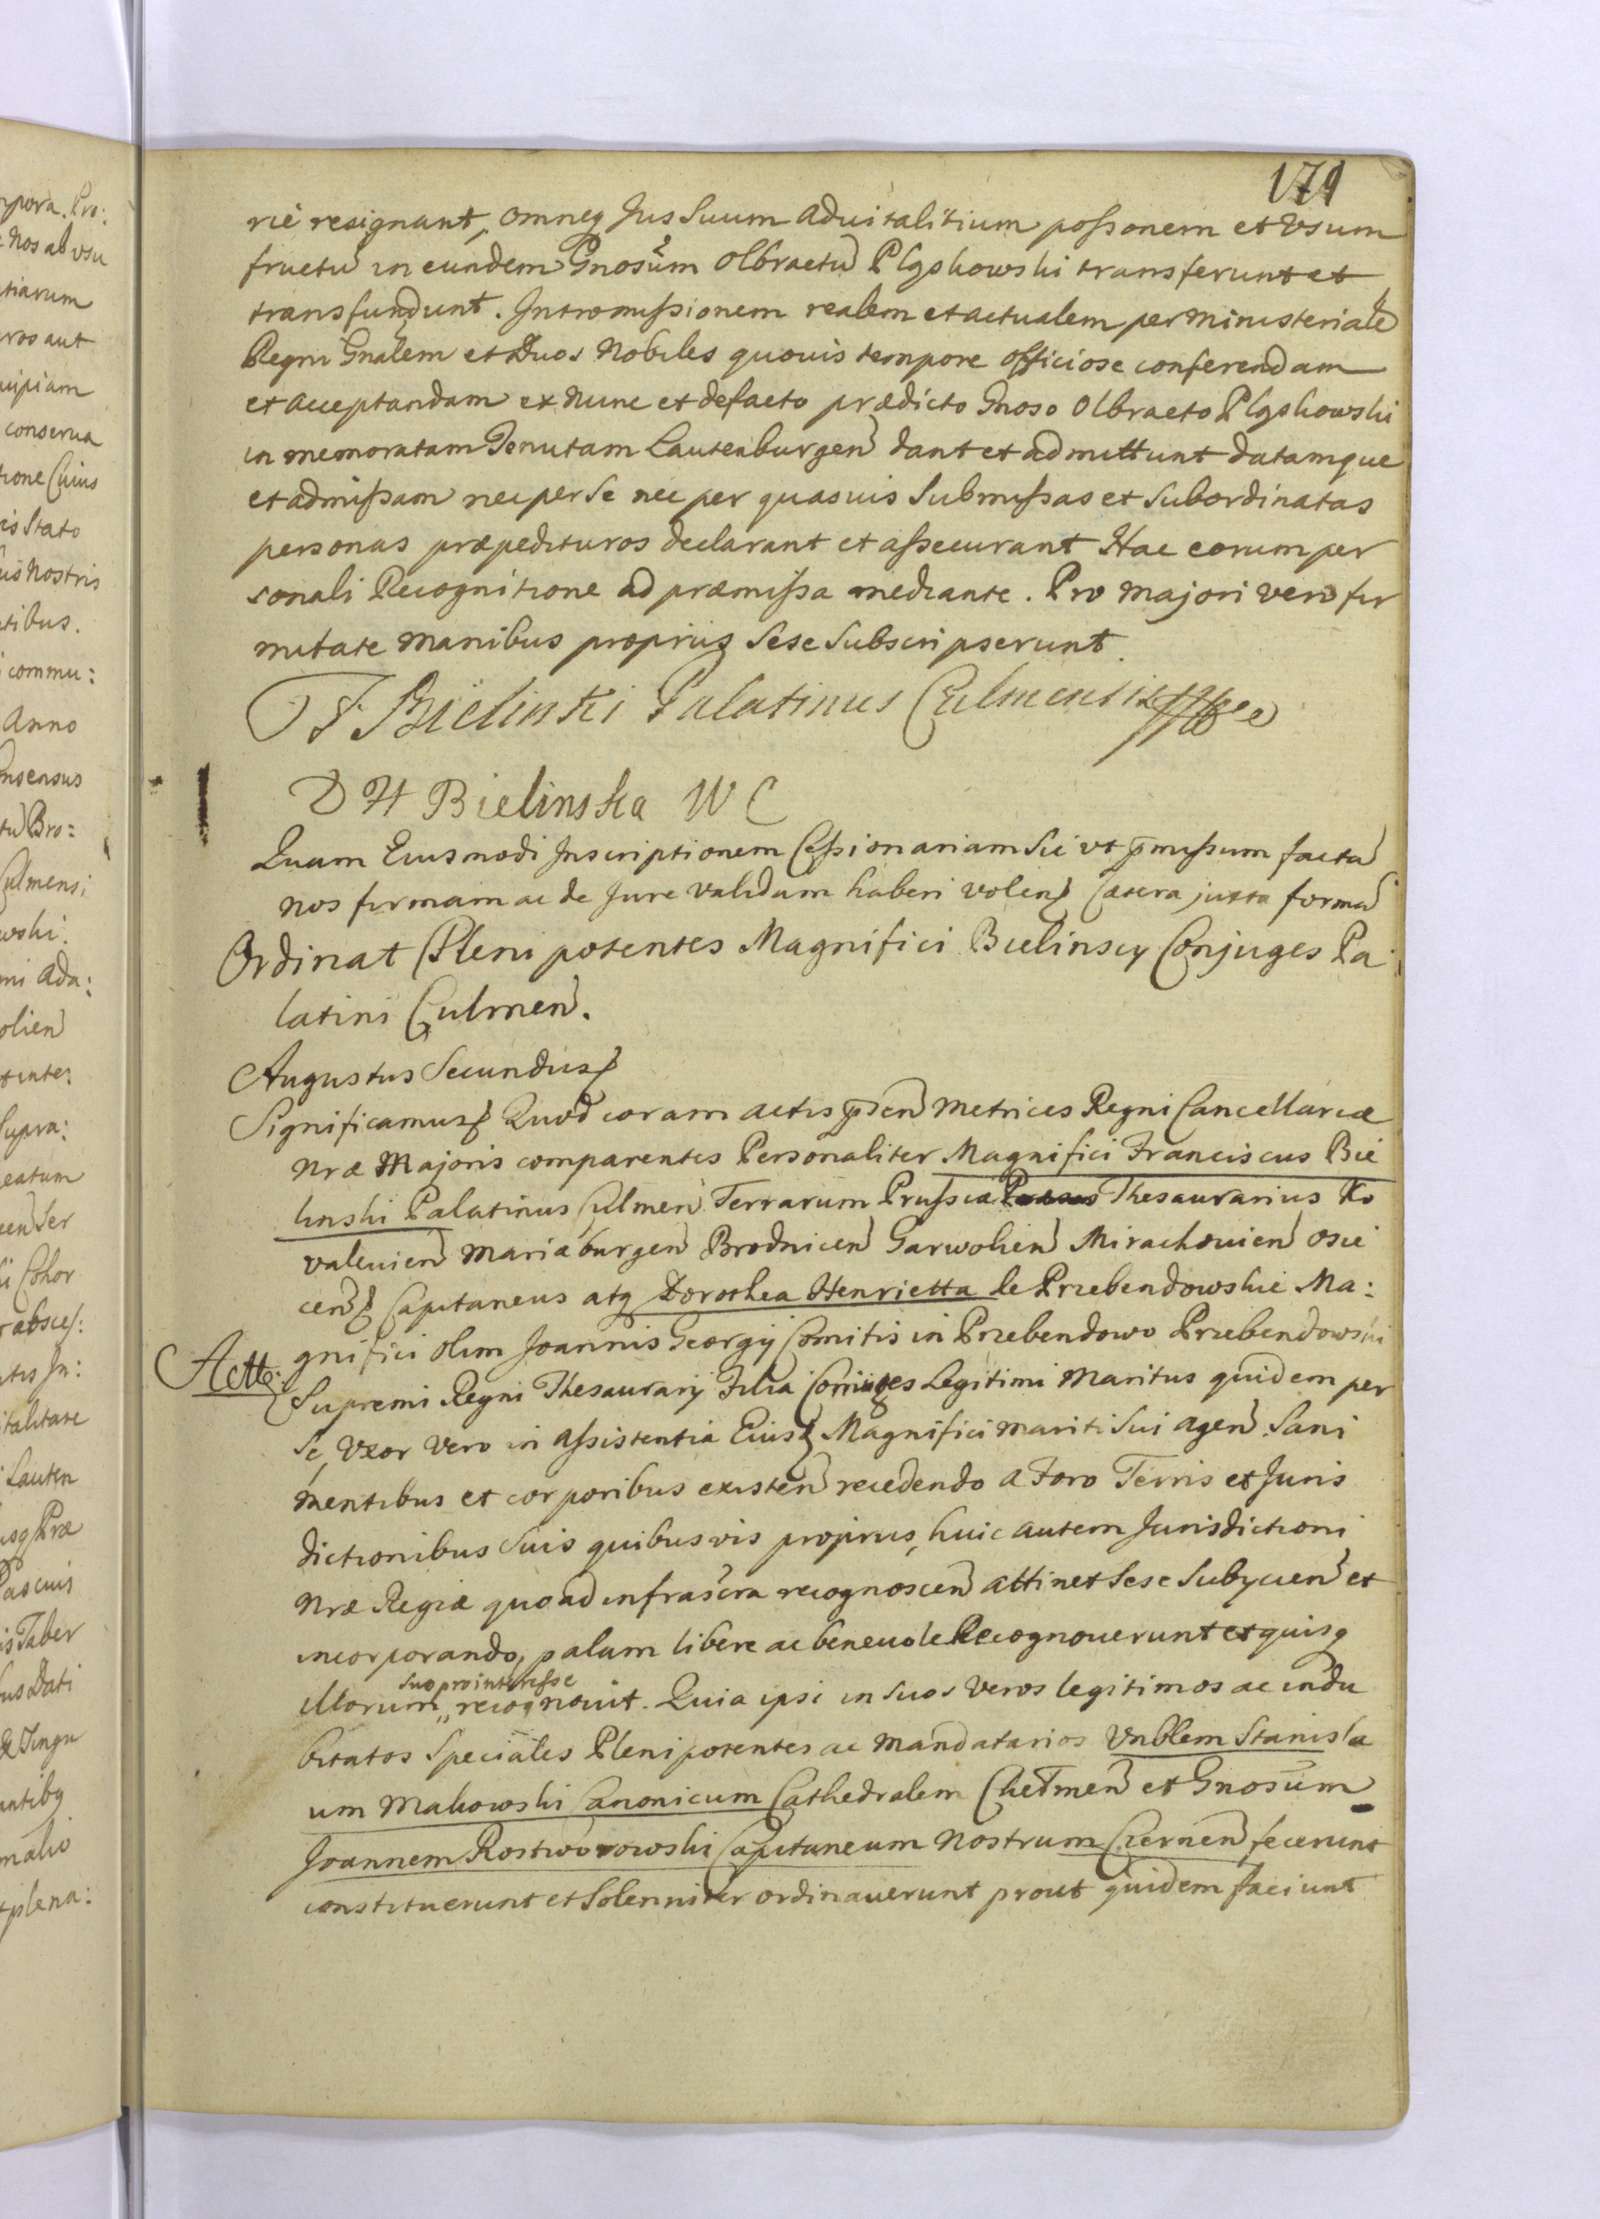 171
rie resignant, omneq Jus Suum aduitalitium possonem et Vsum
fructū in eundem Gnosum Olbractū Pląskowski transferunt et
transfundunt. Intromissionem realem et actualem per ministeriale
Regni Gnalem et Duos Nobiles quouis tempore officiose conferendam
et acceptandam ex nunc et defacto prædicto Gnoso Olbracto Pląskowski
in memoratam Tenutam Lautenburgen dant et admittunt datamque
et admissam nec per se nec per quasuis Submissas et Subordinatas
personas præpedituros declarant et assecurant Hac eorum per
sonali Recognitione ad præmissa mediante. Pro majori vero fir
mitate manibus proprijs Sese Subscripserunt.
F Bielinski Palatinus Culmensis
D H Bielinska W C
Quam Eiusmodi Inscriptionem Cessionariam Sic vt pmissum facta
nos firmam ac de Jure validam haberi volen Cætera juxta forma
Ordinat Plenipotentes Magnifici Bielinscy Conjuges Pa
latini Culmen.
Augustus Secundus
Significamus Quod coram actis psen Metrices Regni Cancellariæ
Nræ Majoris comparentes Personaliter Magnifici Franciscus Bie
linski Palatinus Culmen Terrarum Prussiæ Thesaurarius Ko
valevien Mariæburgen Brodnicen Garwolien Mirachouien Osie
cen Capitaneus atq Dorothea Henrietta de Przebendowskie Ma:
gnifici olim Joannis Georgij Comitis in Przebendowo Przebendowski
Actte:
Supremi Regni Thesaurarij Filia Coniuges Legitimi Maritus quidem per
Se, Vxor Vero in assistentia Eius Magnifici mariti Sui agen Sani
mentibus et corporibus existen recedendo a Foro Terris et Juris
dictionibus Suis quibusvis proprijs, huic autem Jurisdictioni
Nræ Regiæ quoad infrascra recognoscen attinet Sese Subijcien et
incorporando, palam libere ac beneuole Recognouerunt et quisq
suo pro interesse
illorum recognouit. Quia ipsi in Suos Veros legitimos ac indu
bitatos Speciales Plenipotentes ac Mandatarios Vnblem Stanisla
um Makowski Canonicum Cathedralem Chełmen et Gnosum
Joannem Rostworowski Capitaneum Nostrum Czernen fecerunt
constituerunt et Solenniter ordinauerunt prout quidem faciunt